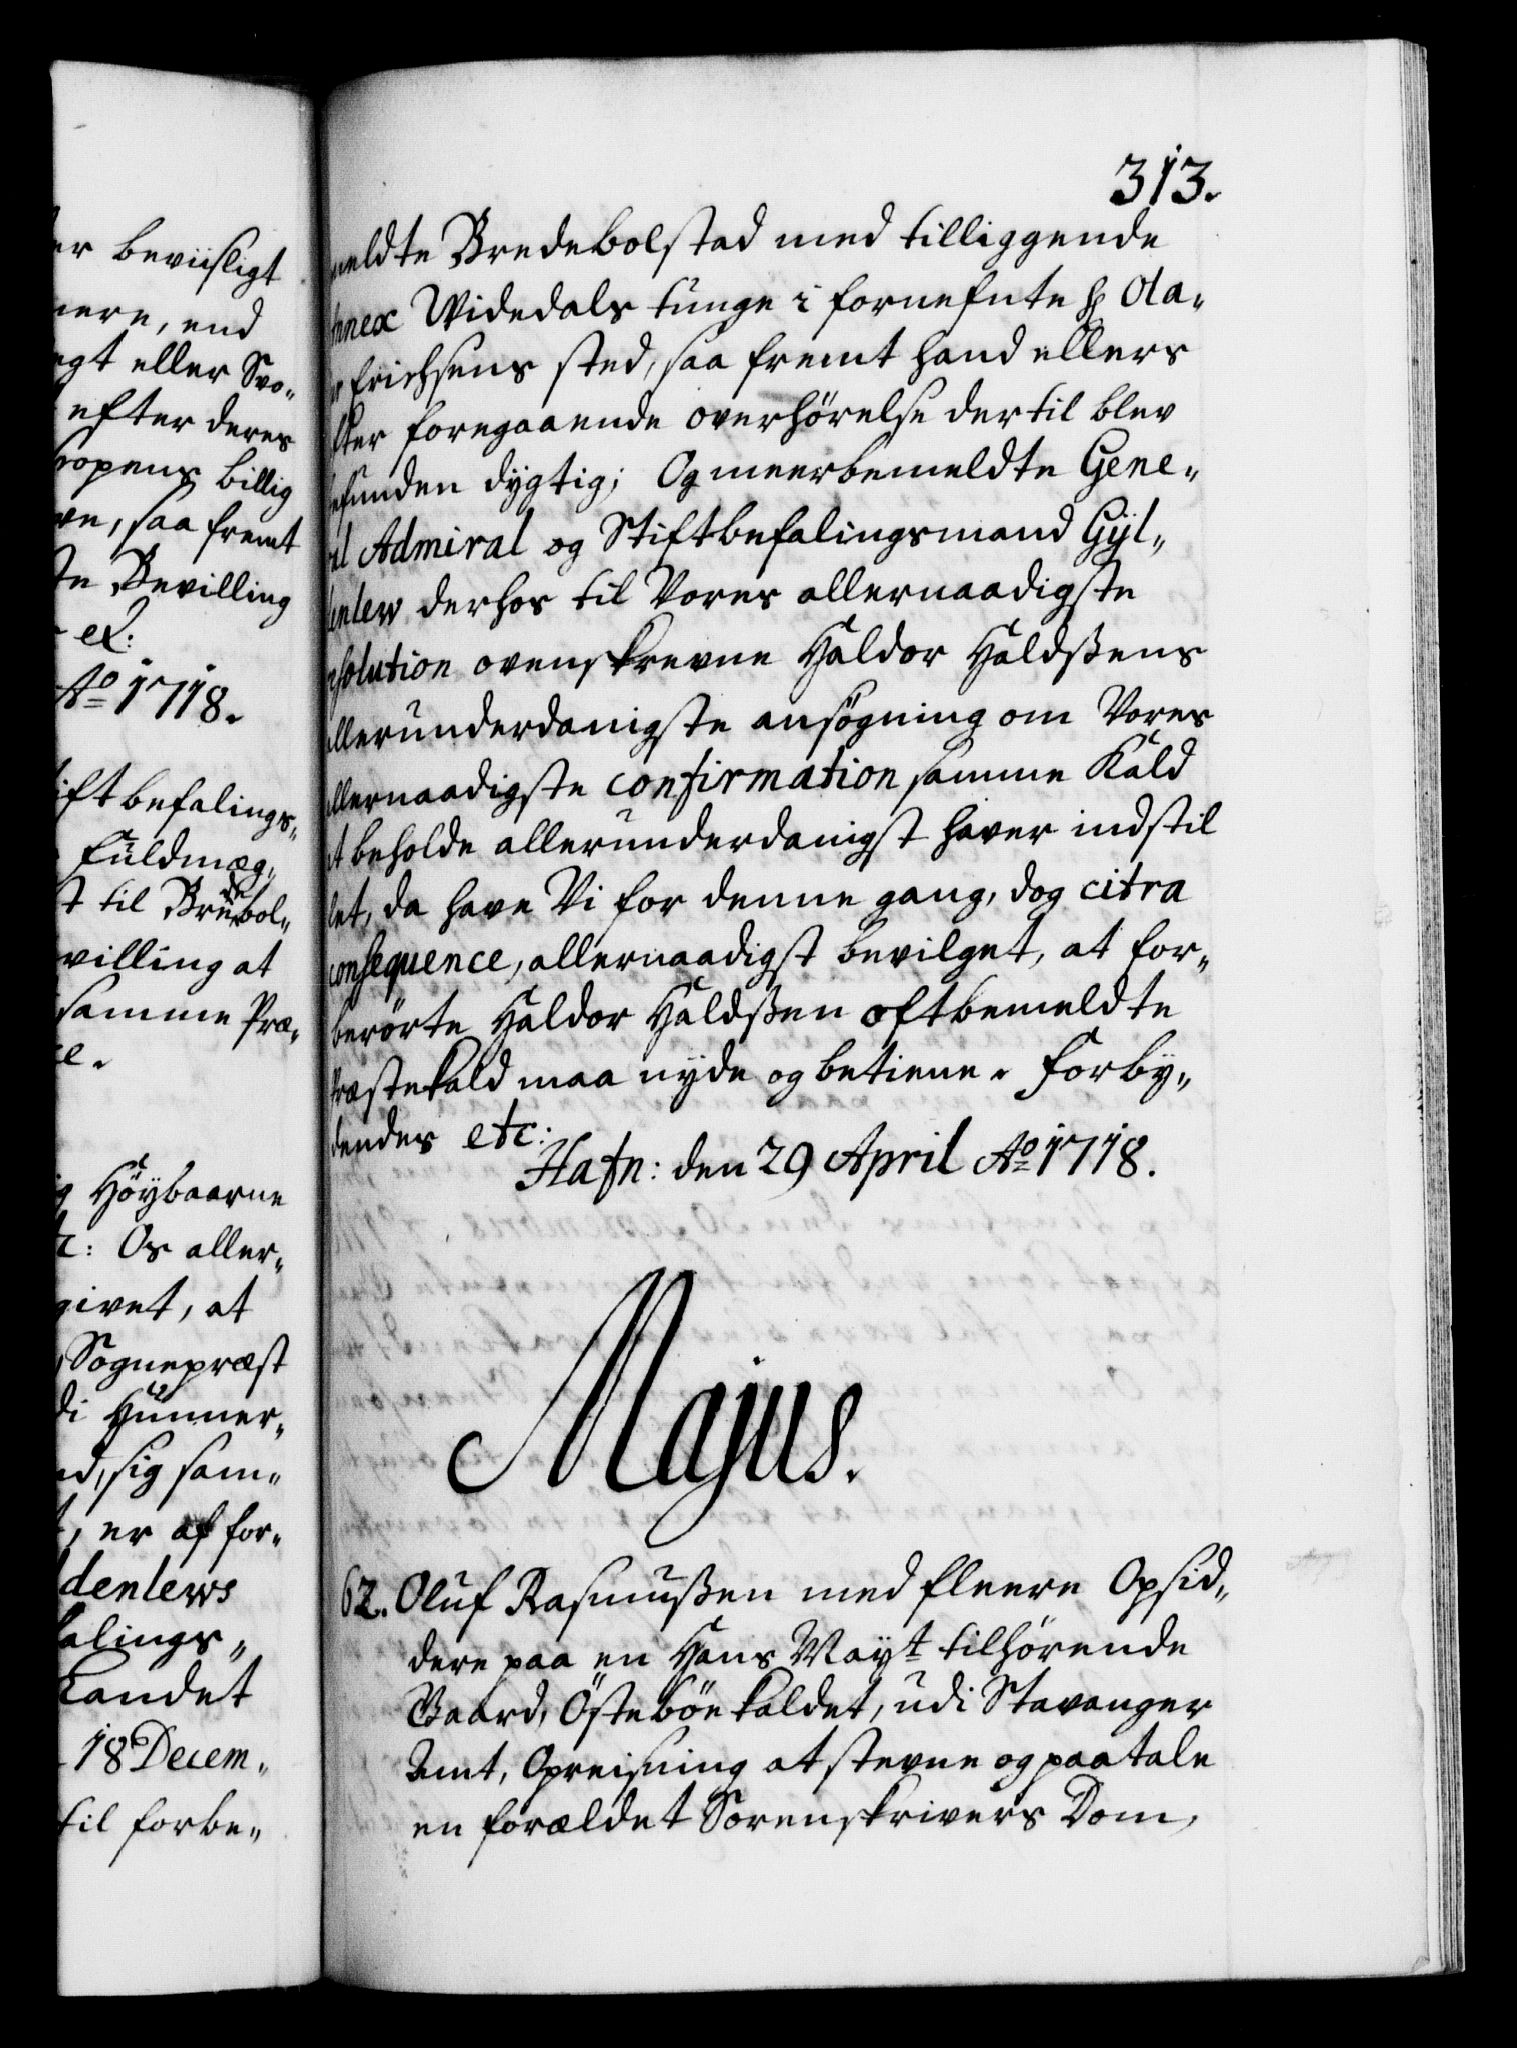 er beviisligt
mere, end
egt eller Svo„
efter deres
ropens billig
ve, saa fremt
te Bevilling
ex:
Ao 1718.
ift befalings„
fuldmæg„
t til Bredebol„
villing at
samme Præ„
ce.
Høybaarne
tc: Os aller„
givet, at
Sognepræst
di Hunner„
nd, sig sam„
, er af for„
ldenlews
falings„
Landet
18 Decem„
til forbe„
313.
meldte Bredebolstad med tilliggende
Annex Widedals tunge i fornefnte Hr Ola„
v Erichsens sted, saa fremt hand ellers
efter foregaaende overhörelse dertil blev
befunden dygtig; Og meerbemeldte Gene„
ral Admiral og Stiftbefalingsmand Gÿl„
denlew derhos til Vores allernaadigste
resolution ovenskrevne Haldor Haldßens
allerunderdanigste ansøgning om Vores
allernaadigste confirmation samme Kald
at beholde allerunderdanigst haver indstil
let, da have Vi for denne gang, dog citra
consequence, allernaadigst bevilget, at for„
berörte Haldor Haldßen oftbemeldte
Præstekald maa nyde og betiene. Forby„
dendes etc:
Hafn: den 29 April Ao 1718.
Majus.
62. Oluf Rasmußen med fleere Opsid„
dere paa en Hans Mayt tilhørende
Gaard, Östebön kaldet, udi Stavanger
Amt, Opreisning at stevne og paatale
en forældet Sorenskrivers Dom,